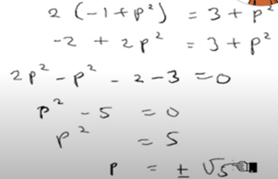 2 (-1 + p²) = 3 + p²
-2 + 2p² = 3 + p²
2p² - p² - 2 - 3 = 0
p² - 5 = 0
p² = 5
p = ± √5